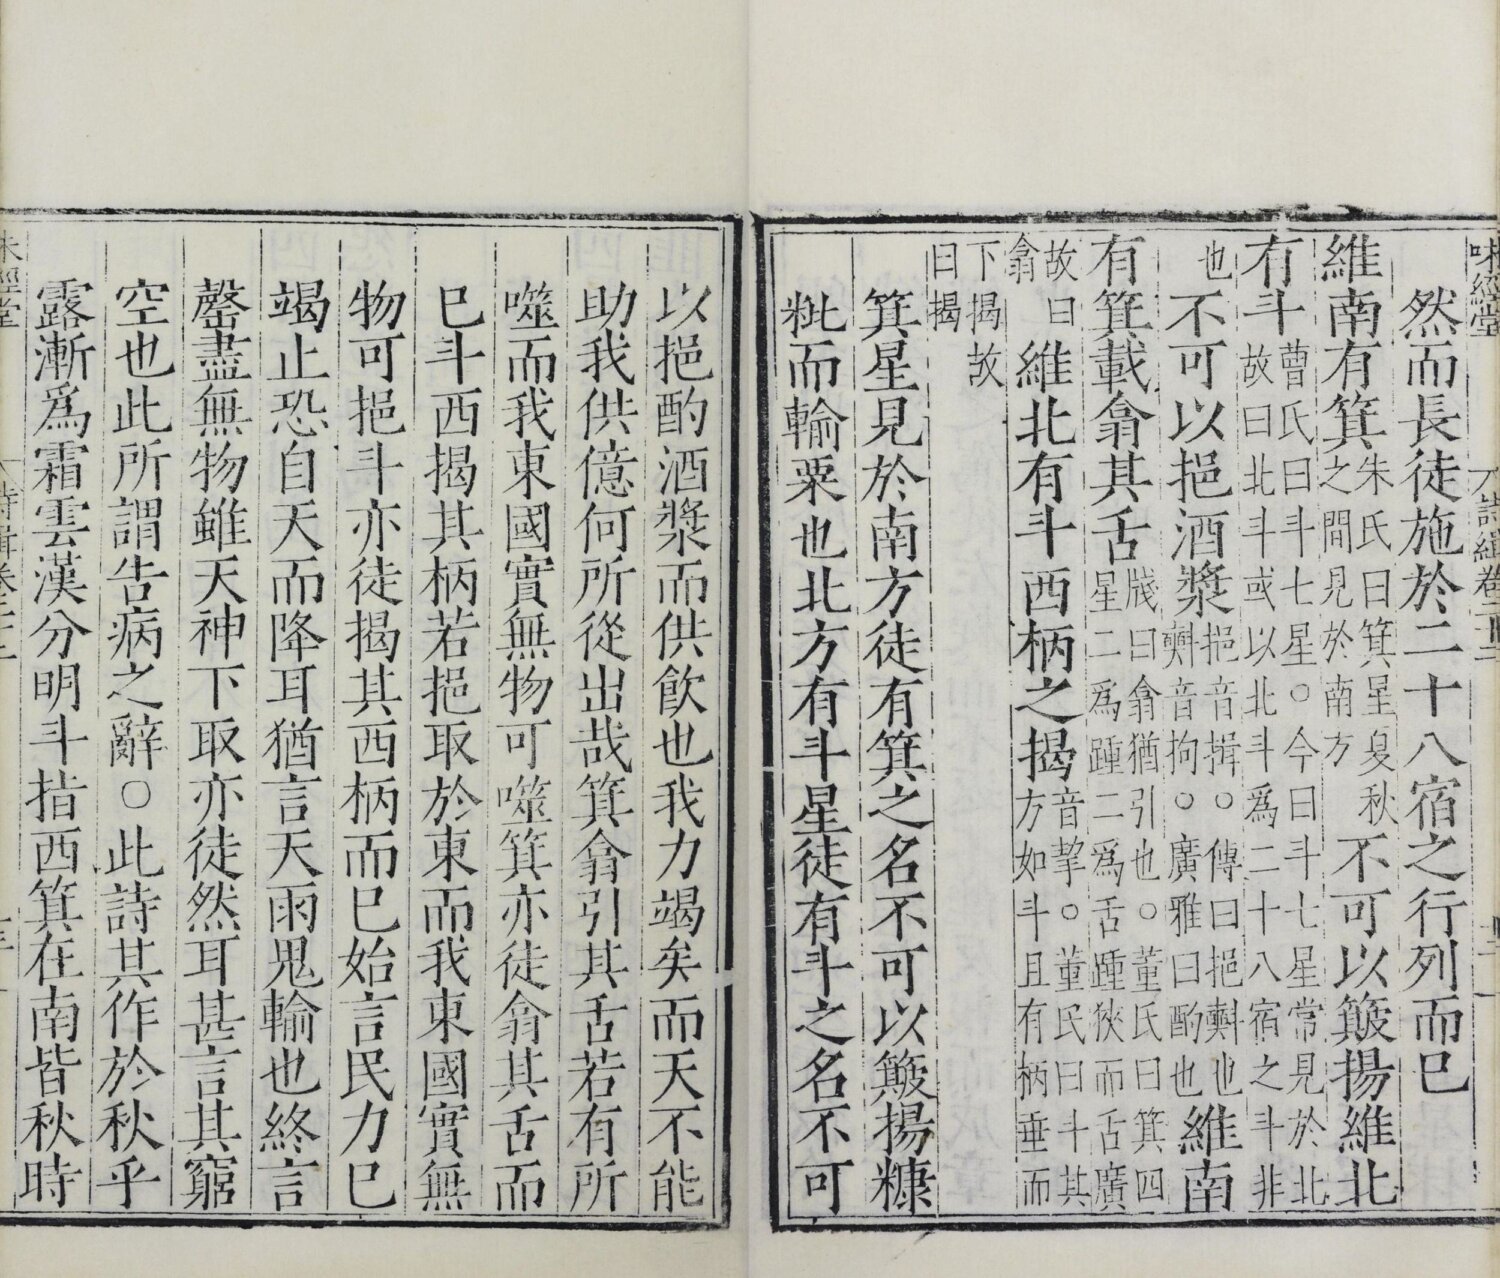 味經堂 詩緝卷二十二
然而長徒施於二十八宿之行列而已
維南有箕朱氏曰箕星夏秋之間見於南方不可以簸揚維北
有斗曹氏曰斗七星○今曰斗七星常見於北故曰北斗或以北斗爲二十八宿之斗非
也不可以挹酒漿挹音揖○傳曰挹㪺也㪺音拘○廣雅曰酌也維南
有箕載翕其舌牋曰翕猶引也○董氏曰箕四星二爲踵二爲舌踵狹而舌廣
故曰翕維北有斗西柄之揭音挈○董民曰斗其方如斗且有柄垂而
下揭故曰揭
箕星見於南方徒有箕之名不可以簸揚糠
粃而輸粟也北方有斗星徒有斗之名不可
以挹酌酒漿而供飲也我力竭矣而天不能
助我供億何所從出哉箕翕引其舌若有所
噬而我東國實無物可噬箕亦徒翕其舌而
已斗西揭其柄若挹取於東而我東國實無
物可挹斗亦徒揭其西柄而已始言民力已
竭止恐自天而降耳猶言天雨鬼輸也終言
罄盡無物雖天神下取亦徒然耳甚言其窮
空也此所謂告病之辭○此詩其作於秋乎
露漸爲霜雲漢分明斗指西箕在南皆秋時
味經堂